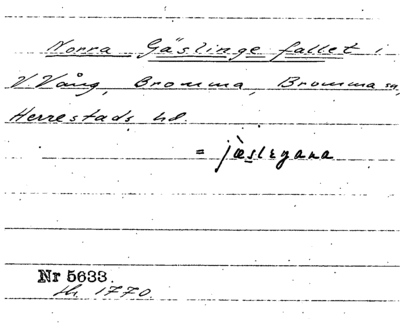 Norra Gäslinge fallet i
V Vång, Bromma, Bromma sn,
Herrestads hd.
= jæslɩŋana
Nr 5633.
Lh 1770.